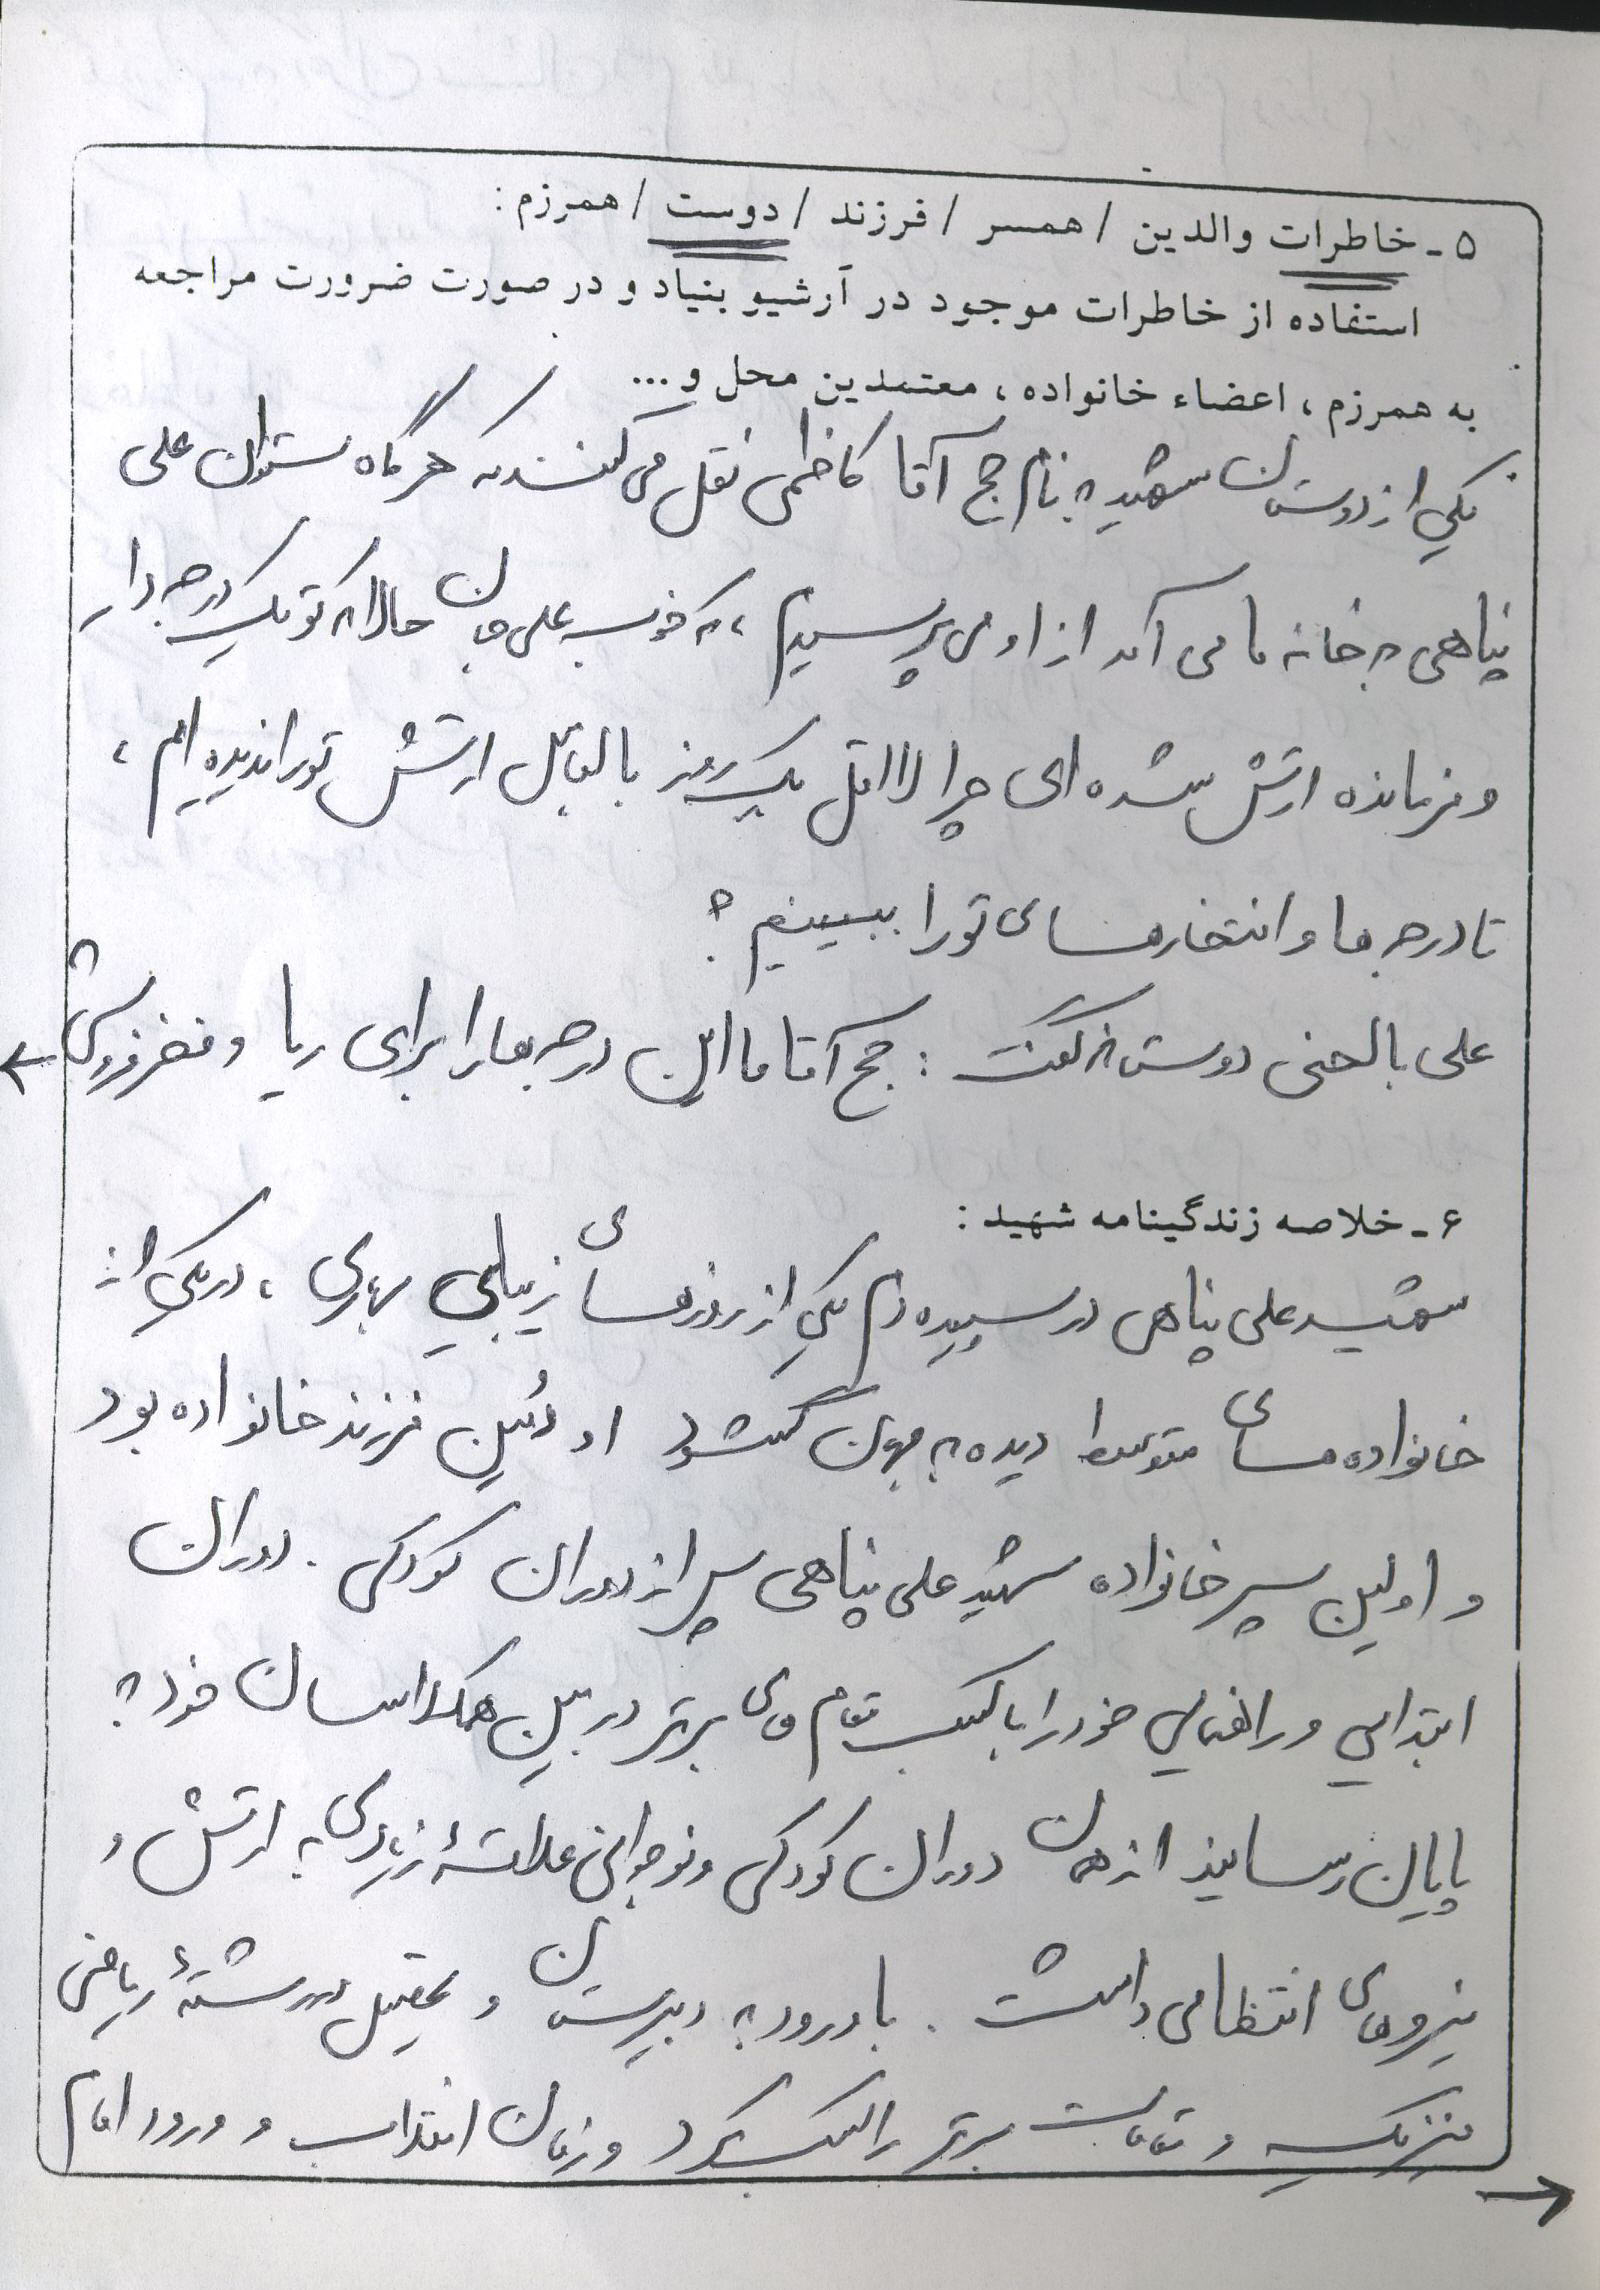 ۵ـ خاطرات والدین / همسر / فرزند / دوست / همرزم :
استفاده از خاطرات موجود در آرشیو بنیاد و در صورت ضرورت مراجعه
به همرزم ، اعضاء خانواده ، معتمدین محل و ...
یکی از دوستان شهید به نام حج آقا کاظمی نقل می کنند که هرگاه ستوان علی
پناهی به خانه ما می آمد از او می پرسیدم ، که خوب علی جان حالا که تو یک درجه دار
و فرمانده ارتش شده ای چرا لااقل یک روز با لباس ارتش تو را ندیده ایم ،
تا درجه ها و افتخارهای تو را ببینیم ؟
علی با لحنی دوستانه گفت : حج آقا ما این درجه ها را برای ریا و فخر فروشی ←
۶ـ خلاصه زندگینامه شهید :
شهید علی پناهی در سپیده دم یکی از روزهای زیبای بهاری ، در یکی از
خانواده های متوسط دیده به جهان گشود او دُمین فرزند خانواده بود
و اولین پسر خانواده شهید علی پناهی پس از دوران کودکی . دوران
ابتدایی و راهنمایی خود را با کسب مقام های برتر در بین همکلاسان خود به
پایان رسانید از همان دوران کودکی و نوجوانی علاقهٔ زیادی به ارتش و
نیروهای انتظامی داشت . با ورود به دبیرستان و تحصیل در رشتهٔ ریاضی
فیزیک و مقامات برتر را کسب کرد و زمان انقلاب و ورود امام
→